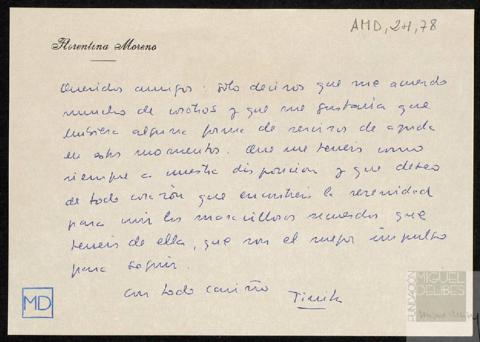 AMD, 24, 78
Florentina Moreno
Queridos amigos: solo deciros que me acuerdo
mucho de vosotros y que me gustaría que
hubiera alguna forma de serviros de ayuda
en estos momentos. Que me teneis como
siempre a vuestra disposición y que deseo
de todo corazón que encontreis la serenidad
para vivir los maravillosos recuerdos que
teneis de ella, que son el mejor impulso
para seguir.
Con todo cariño
MD
FUNDACIÓN
MIGUEL
DELIBES